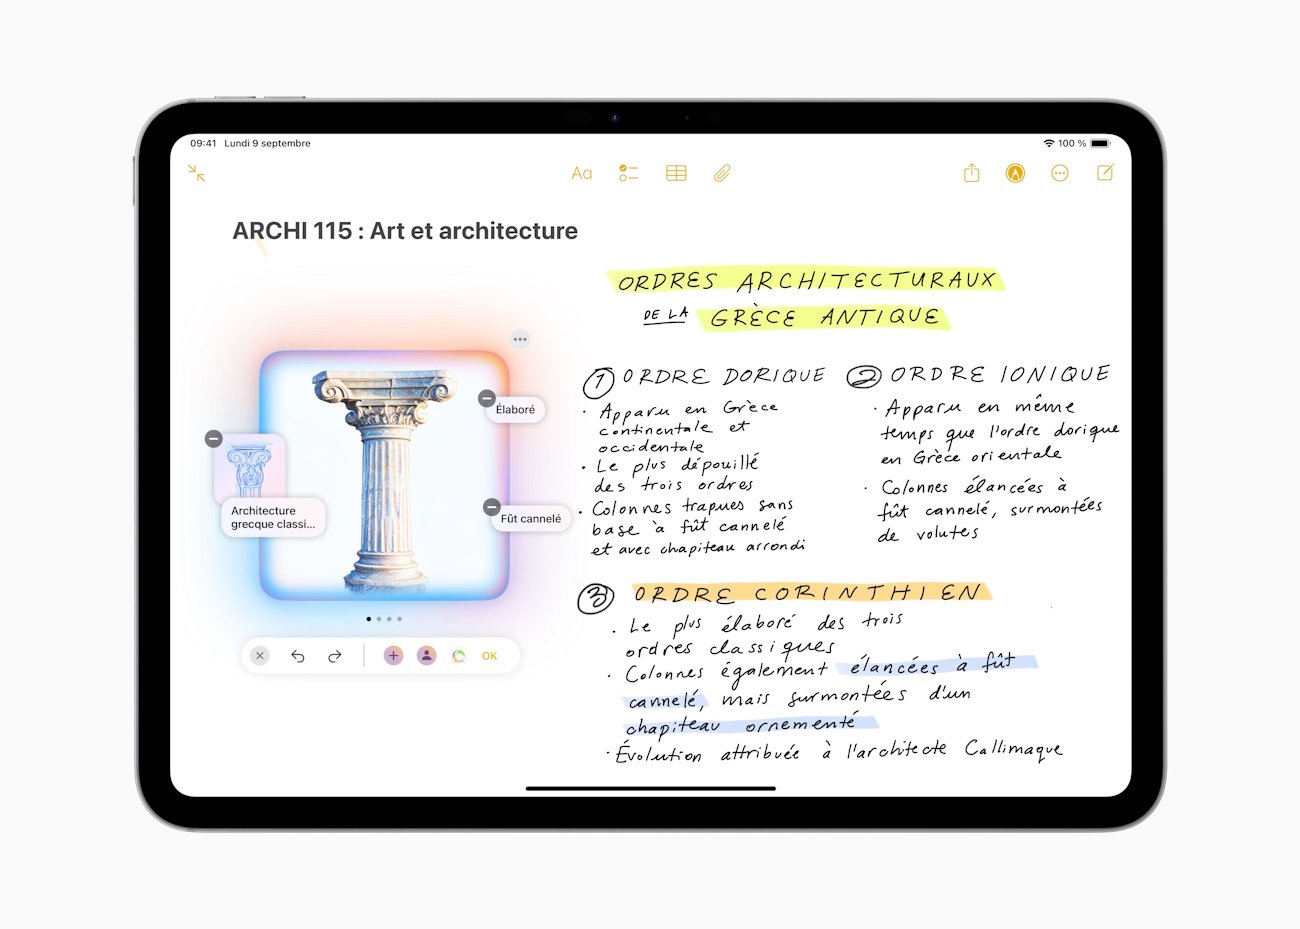 09:41 Lundi 9 septembre
100 %
Aa
ARCHI 115 : Art et architecture
Élaboré
Architecture
grecque classi...
Fût cannelé
OK
ORDRES ARCHITECTURAUX
DE LA GRÈCE ANTIQUE
1 ORDRE DORIQUE
· Apparu en Grèce
continentale et
occidentale
· Le plus dépouillé
des trois ordres
· Colonnes trapues sans
base à fût cannelé
et avec chapiteau arrondi
2 ORDRE IONIQUE
· Apparu en même
temps que l'ordre dorique
en Grèce orientale
· Colonnes élancées à
fût cannelé, surmontées
de volutes
3 ORDRE CORINTHIEN
· Le plus élaboré des trois
ordres classiques
· Colonnes également élancées à fût
cannelé, mais surmontées d'un
chapiteau ornementé
· Évolution attribuée à l'architecte Callimaque